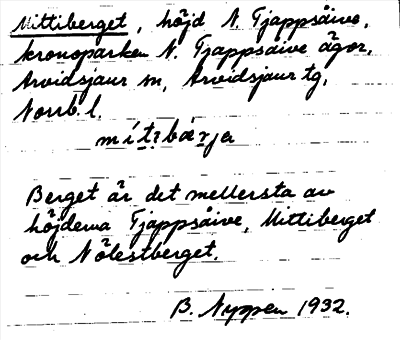 Mittiberget, höjd N. Tjappsåive,
kronoparken N. Tjappsaive ägor,
Arvidsjaur sn, Arvidsjaur tg,
Norrb. l.
mítibärja
Berget är det mellersta av
höjderna Tjappsaive, Mittiberget
och Nölestberget.
B. Nyppen 1932.